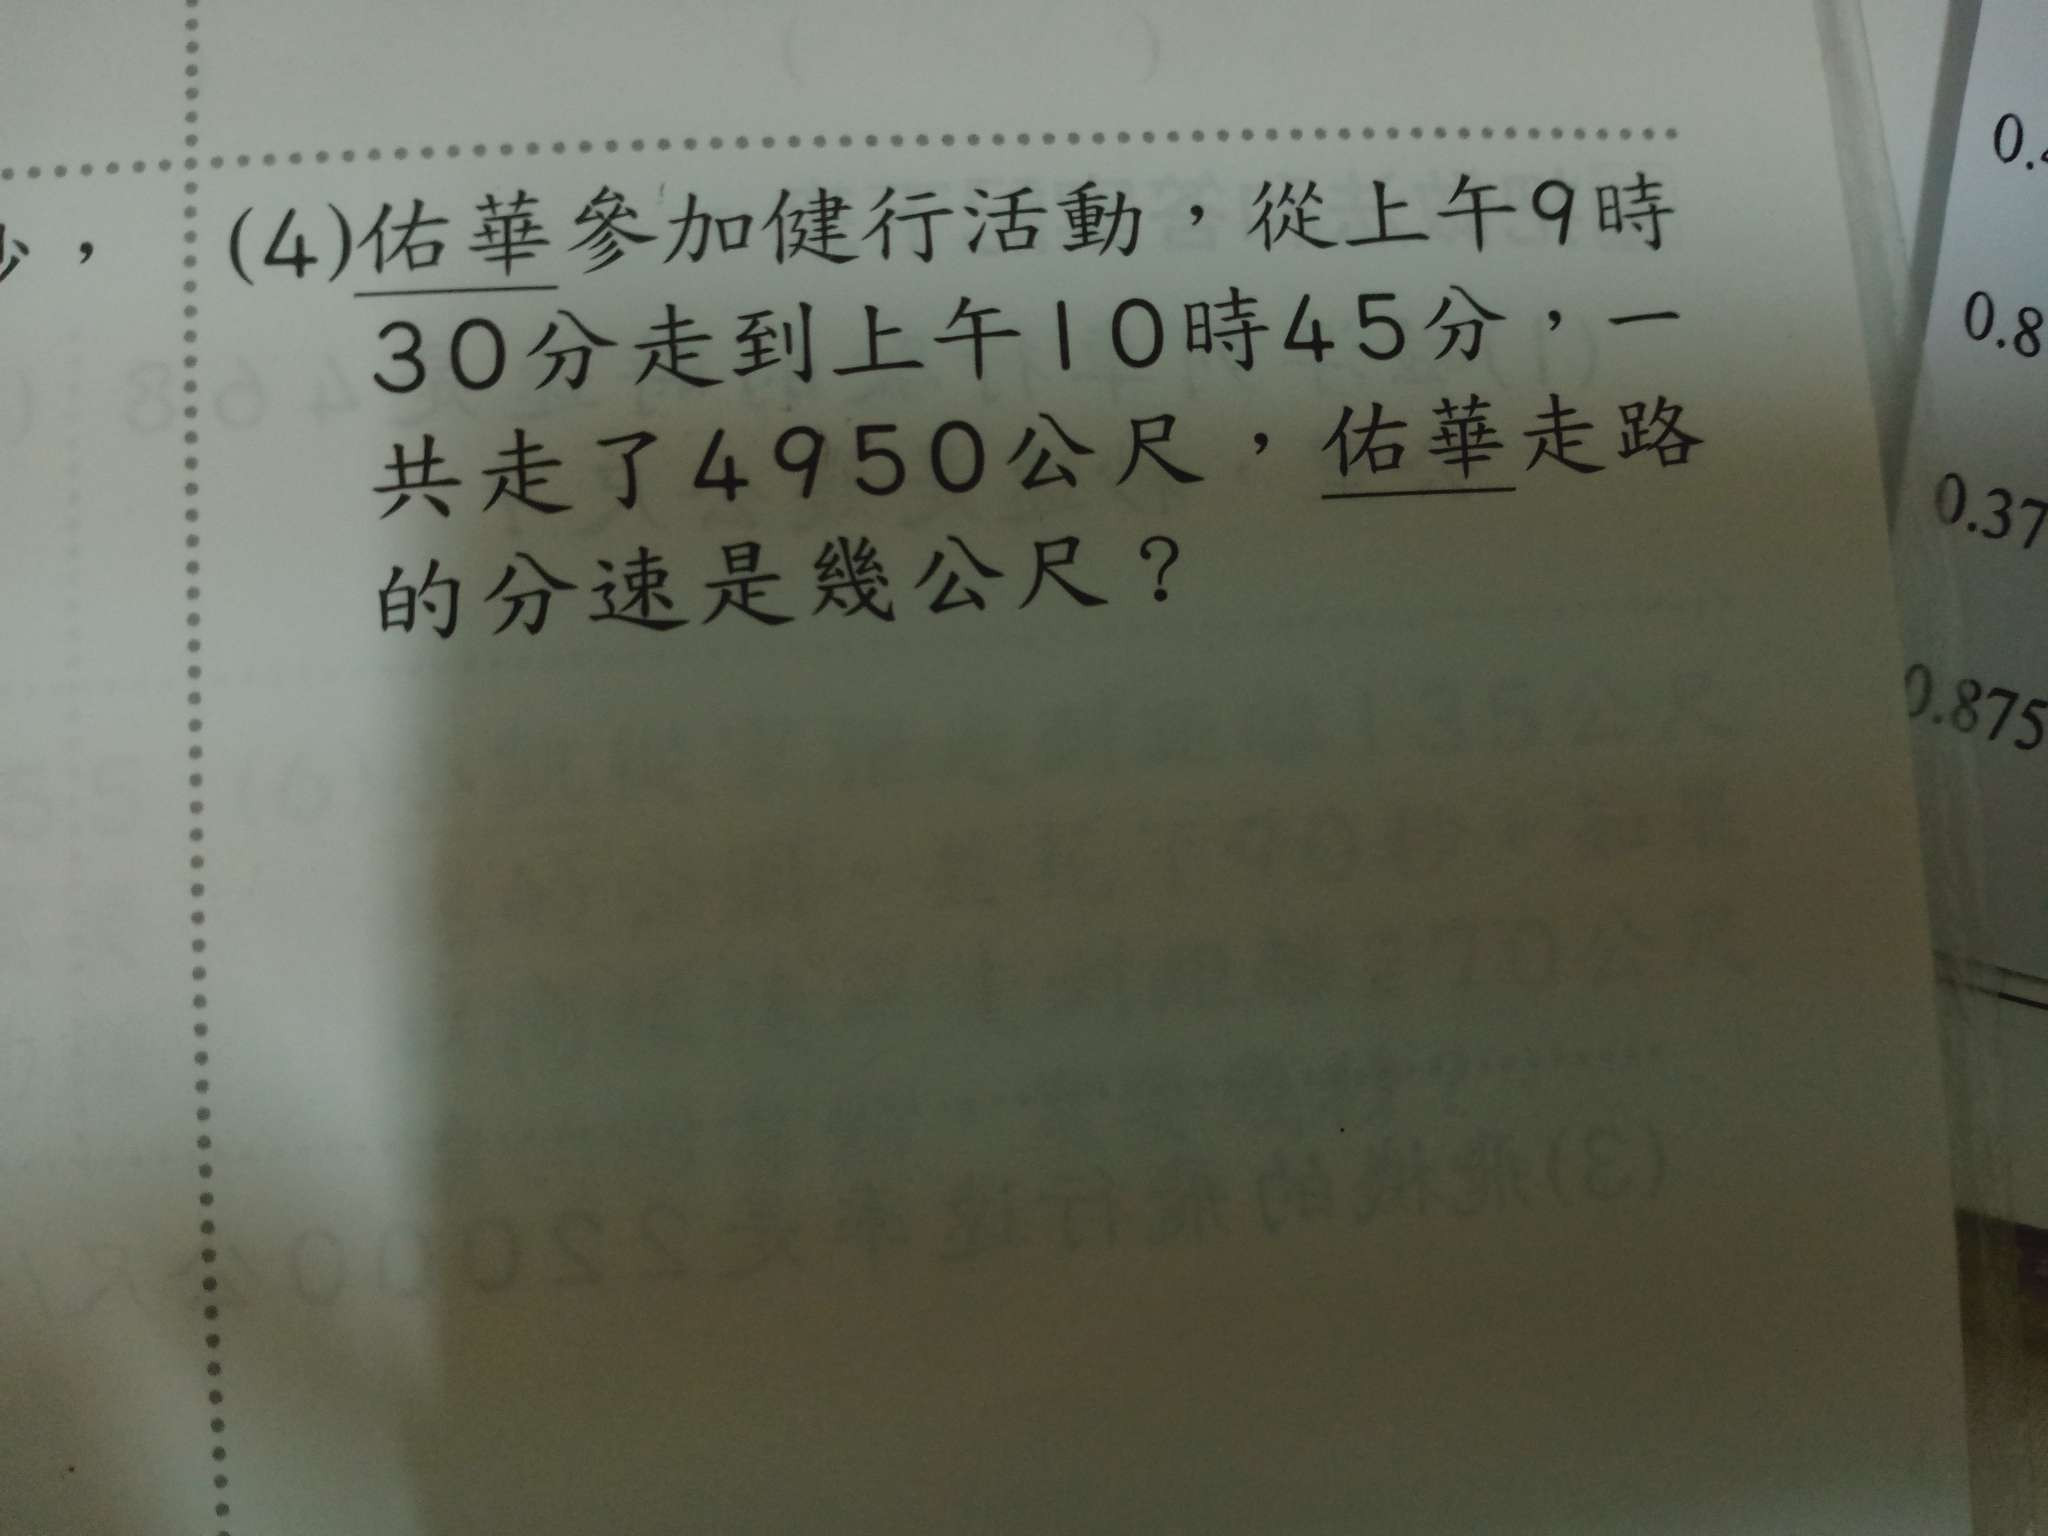 (4)佑華參加健行活動，從上午9時
30分走到上午10時45分，一
共走了4950公尺，佑華走路
的分速是幾公尺？
，
0.8
0.37
0.875